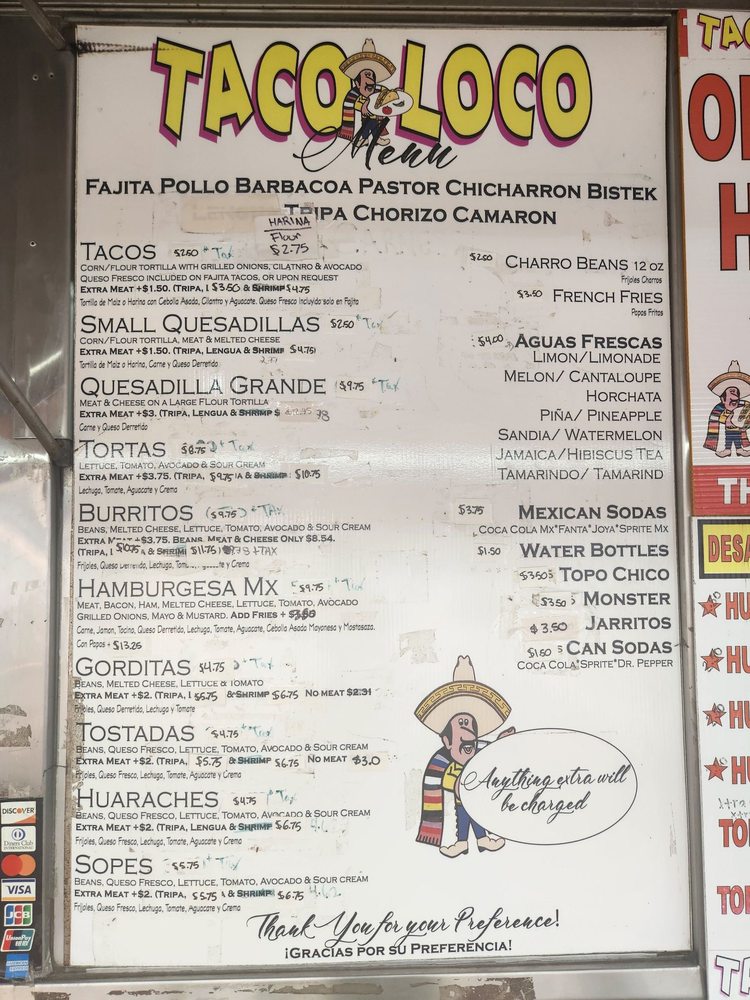 TACO LOCO
Menu
FAJITA POLLO BARBACOA PASTOR CHICHARRON BISTEK
TRIPA CHORIZO CAMARON
HARINA
Flour
$2.75
TACOS $2.50 + Tax
CORN/FLOUR TORTILLA WITH GRILLED ONIONS, CILATNRO & AVOCADO
QUESO FRESCO INCLUDED ON FAJITA TACOS, OR UPON REQUEST
EXTRA MEAT +$1.50. (TRIPA, $3.50 & SHRIMP $4.75
Tortilla de Maiz o Harina con Cebolla Asada, Cilantro y Aguacate. Queso Fresco Incluido solo en Fajita
SMALL QUESADILLAS $2.50 + Tax
CORN/FLOUR TORTILLA, MEAT & MELTED CHEESE
EXTRA MEAT +$1.50. (TRIPA, LENGUA & SHRIMP $4.75)
Tortilla de Maiz o Harina, Carne y Queso Derretido
QUESADILLA GRANDE $9.75 + Tax
MEAT & CHEESE ON A LARGE FLOUR TORTILLA
EXTRA MEAT +$3. (TRIPA, LENGUA & SHRIMP $
Carne y Queso Derretido
TORTAS $8.75 + Tax
LETTUCE, TOMATO, AVOCADO & SOUR CREAM
EXTRA MEAT +$3.75. (TRIPA, $9.75 & SHRIMP $10.75
Lechuga, Tomate, Aguacate y Crema
BURRITOS ($9.75) + TAX
BEANS, MELTED CHEESE, LETTUCE, TOMATO, AVOCADO & SOUR CREAM
EXTRA +$3.75. BEANS, MEAT & CHEESE ONLY $8.54.
(TRIPA, $10.75 & SHRIMP $11.75) + TAX
Frijoles, Queso Derretido, Lechuga, Crema
HAMBURGESA MX $9.75 + Tax
MEAT, BACON, HAM, MELTED CHEESE, LETTUCE, TOMATO, AVOCADO
GRILLED ONIONS, MAYO & MUSTARD. ADD FRIES +
Carne, Jamon, Tocino, Queso Derretido, Lechuga, Tomate, Aguacate, Cebolla Asada Mayonesa y Mostasaza.
Con Papas + $13.25
GORDITAS $4.75 + Tax
BEANS, MELTED CHEESE, LETTUCE & TOMATO
EXTRA MEAT +$2. (TRIPA, $5.75 & SHRIMP $6.75 NO MEAT $2.31
Frijoles, Queso Derretido, Lechuga y Tomate
TOSTADAS $4.75 + Tax
BEANS, QUESO FRESCO, LETTUCE, TOMATO, AVOCADO & SOUR CREAM
EXTRA MEAT +$2. (TRIPA, $5.75 & SHRIMP $6.75 NO MEAT $3.0
Frijoles, Queso Fresco, Lechuga, Tomate, Aguacate y Crema
HUARACHES $4.75 + Tax
BEANS, QUESO FRESCO, LETTUCE, TOMATO, AVOCADO & SOUR CREAM
EXTRA MEAT +$2. (TRIPA, LENGUA & SHRIMP $6.75
Frijoles, Queso Fresco, Lechuga, Tomate, Aguacate y Crema
SOPES $5.75 + Tax
BEANS, QUESO FRESCO, LETTUCE, TOMATO, AVOCADO & SOUR CREAM
EXTRA MEAT +$2. (TRIPA, $5.75 & SHRIMP $6.75 4.62
Frijoles, Queso Fresco, Lechuga, Tomate, Aguacate y Crema
$2.50 CHARRO BEANS 12 OZ
Frijoles Charros
$3.50 FRENCH FRIES
Papas Fritas
$4.00 AGUAS FRESCAS
LIMON/LIMONADE
MELON/ CANTALOUPE
HORCHATA
PIÑA/ PINEAPPLE
SANDIA/ WATERMELON
JAMAICA/HIBISCUS TEA
TAMARINDO/ TAMARIND
$3.75 MEXICAN SODAS
COCA COLA MX*FANTA*JOYA*SPRITE MX
$1.50 WATER BOTTLES
$3.50 TOPO CHICO
$3.50 MONSTER
$3.50 JARRITOS
$1.50 CAN SODAS
COCA COLA*SPRITE*DR. PEPPER
Anything extra will
be charged
Thank You for your Preference!
¡GRACIAS POR SU PREFERENCIA!
DISCOVER
Diners Club
INTERNATIONAL
VISA
JCB
UnionPay
TH
DESA
HU
HU
HU
HU
TO
TOR